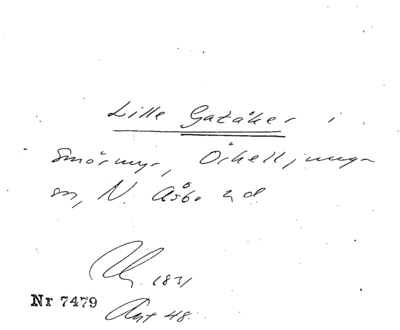 Lille Gatåker i
Smörmyr, Örkelljunga
sn, N. Åsbo hd
1831
Nr 7479
Akt 48.